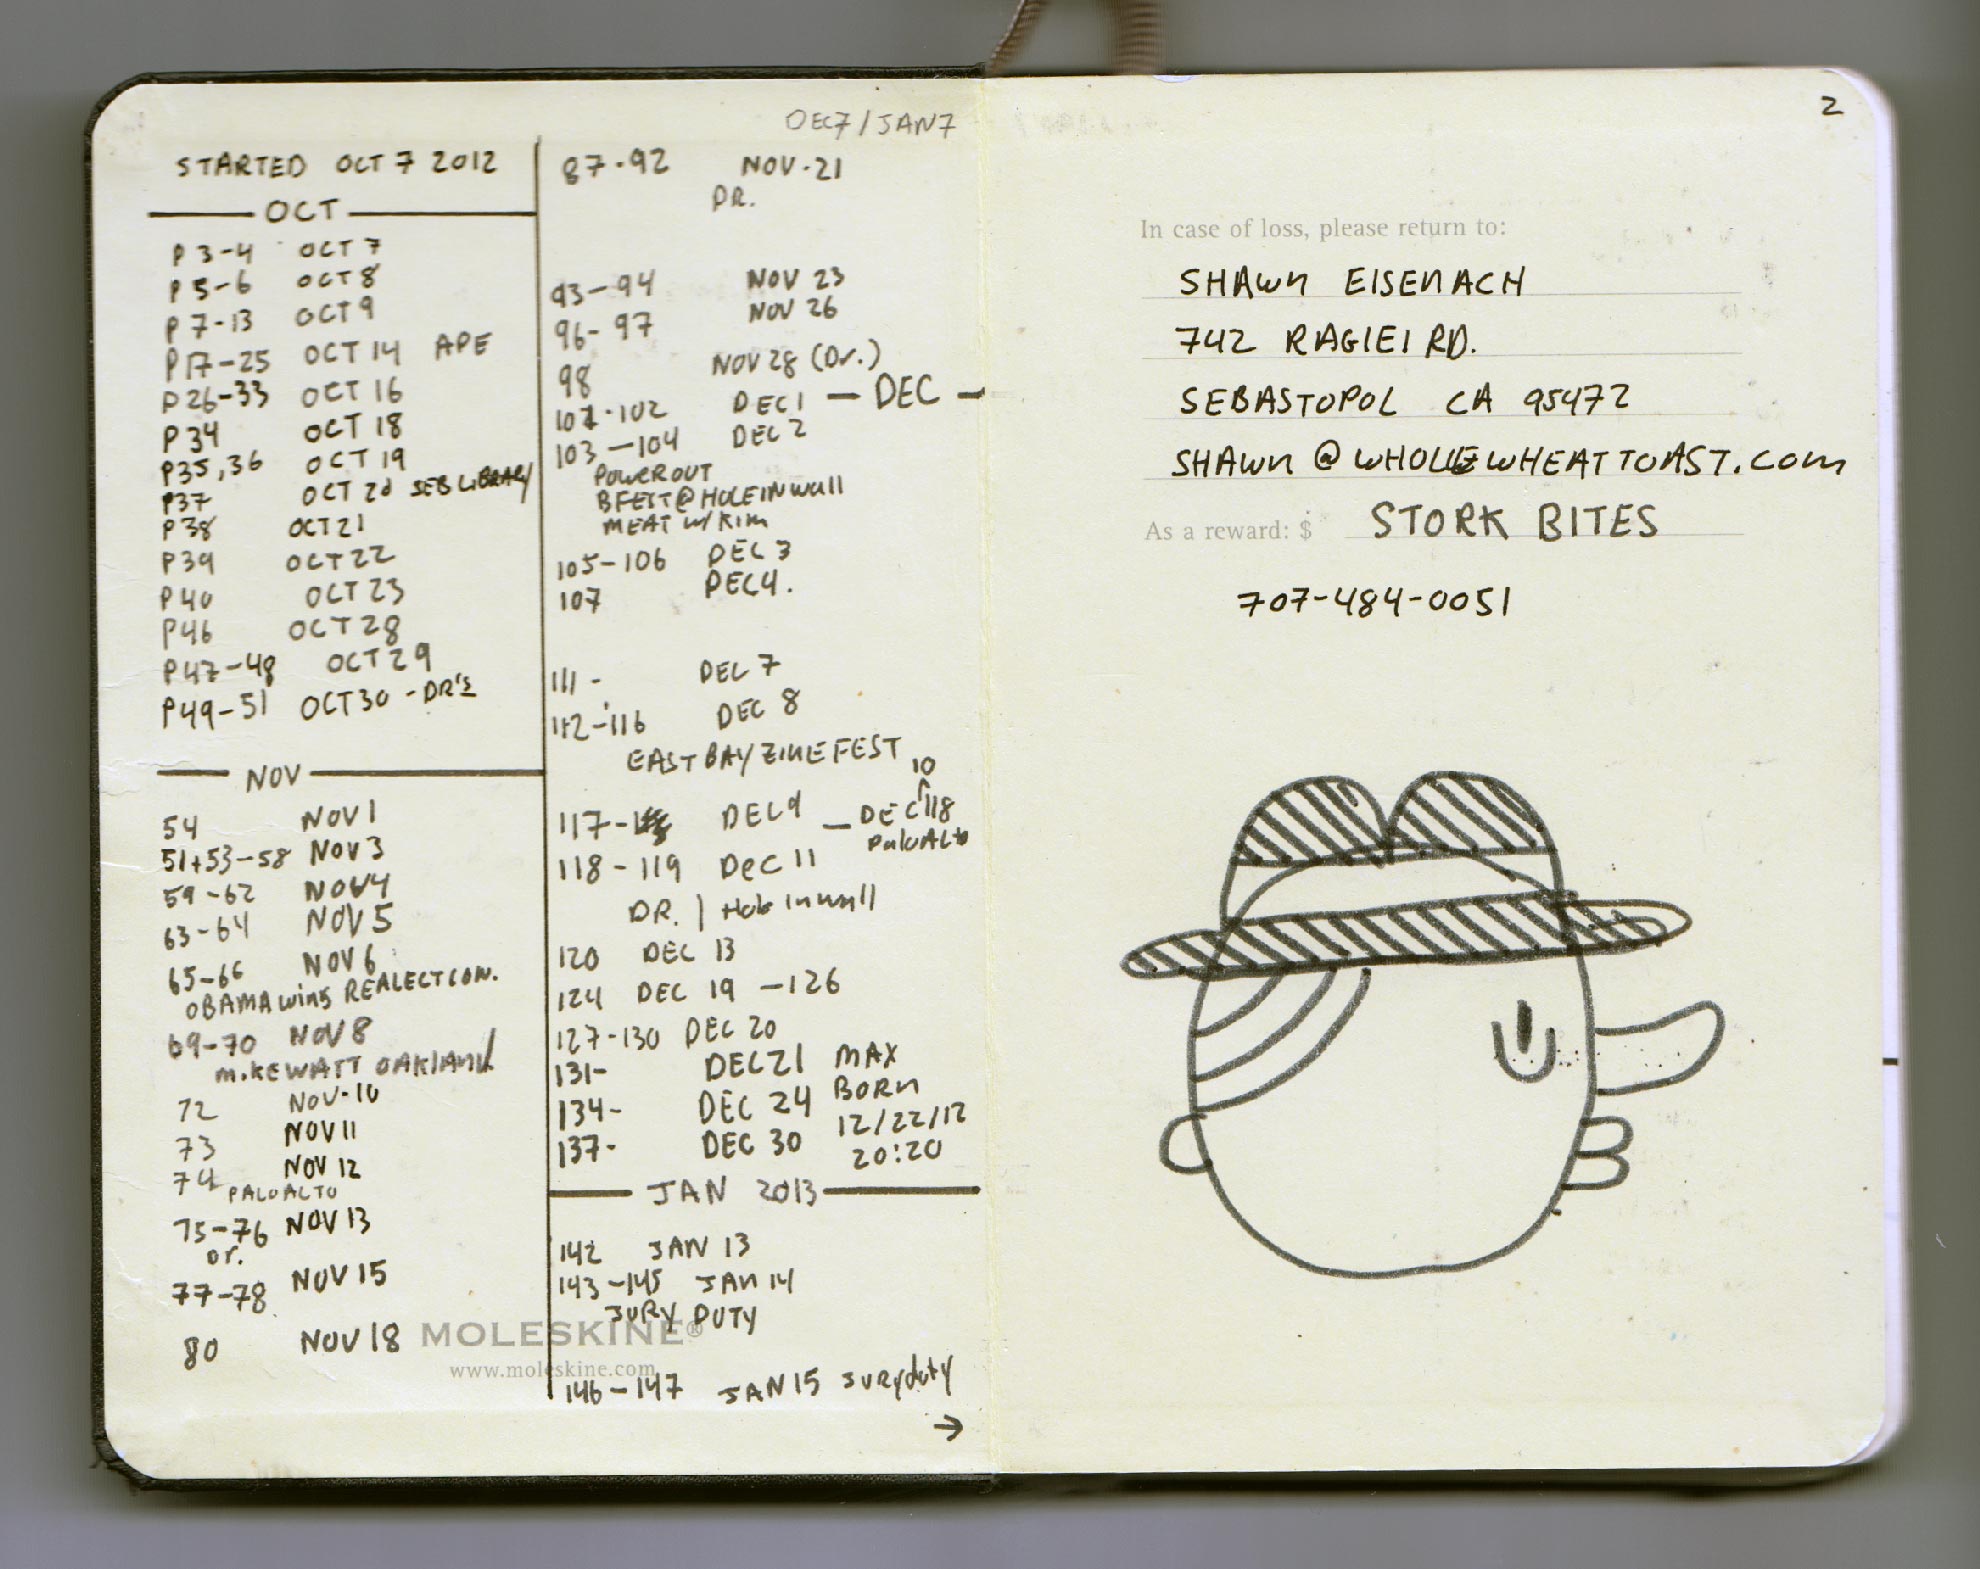 STARTED OCT 7 2012
OCT
P 3-4 OCT 7
P 5-6 OCT 8
P 7-13 OCT 9
P17-25 OCT 14 APE
P26-33 OCT 16
P34 OCT 18
P35,36 OCT 19
P37 OCT 20 SEB LIBRARY
P38 OCT21
P39 OCT22
P40 OCT23
P46 OCT28
P47-48 OCT29
P49-51 OCT30 - DR'S
NOV
54 NOV 1
51+53-58 NOV 3
59-62 NOV4
63-64 NOV 5
65-66 NOV 6
OBAMA wins REALECTION.
69-70 NOV 8
MIKEWATT OAKLAND
72 NOV-10
73 NOV 11
74 NOV 12
PALOALTO
75-76 NOV 13
Dr.
77-78 NOV 15
80 NOV 18
MOLESKINE®
www.moleskine.com
DEC7/JAN7
87-92 NOV-21
DR.
93-94 NOV 23
96-97 NOV 26
98 NOV 28 (Dr.)
101-102 DEC 1 — DEC —
103-104 DEC 2
POWEROUT
BFEST@HOLEINwall
MEAT w/ KIM
105-106 DEC 3
107 DEC4.
111- DEC 7
112-116 DEC 8
EASTBAY ZINEFEST
117- DEC9 — DEC 10 118
PaloAlto
118-119 DEC 11
DR. | Hole in wall
120 DEC 13
124 DEC 19 -126
127-130 DEC 20
131- DEC21 MAX
134- DEC 24 BORN
12/22/12
137- DEC 30 20:20
JAN 2013
142 JAN 13
143-145 JAN 14
JURY DUTY
146-147 JAN 15 Juryduty
→
2
In case of loss, please return to:
SHAWN EISENACH
742 RAGLEI RD.
SEBASTOPOL CA 95472
SHAWN@WHOLEWHEATTOAST.COM
As a reward: $ STORK BITES
707-484-0051